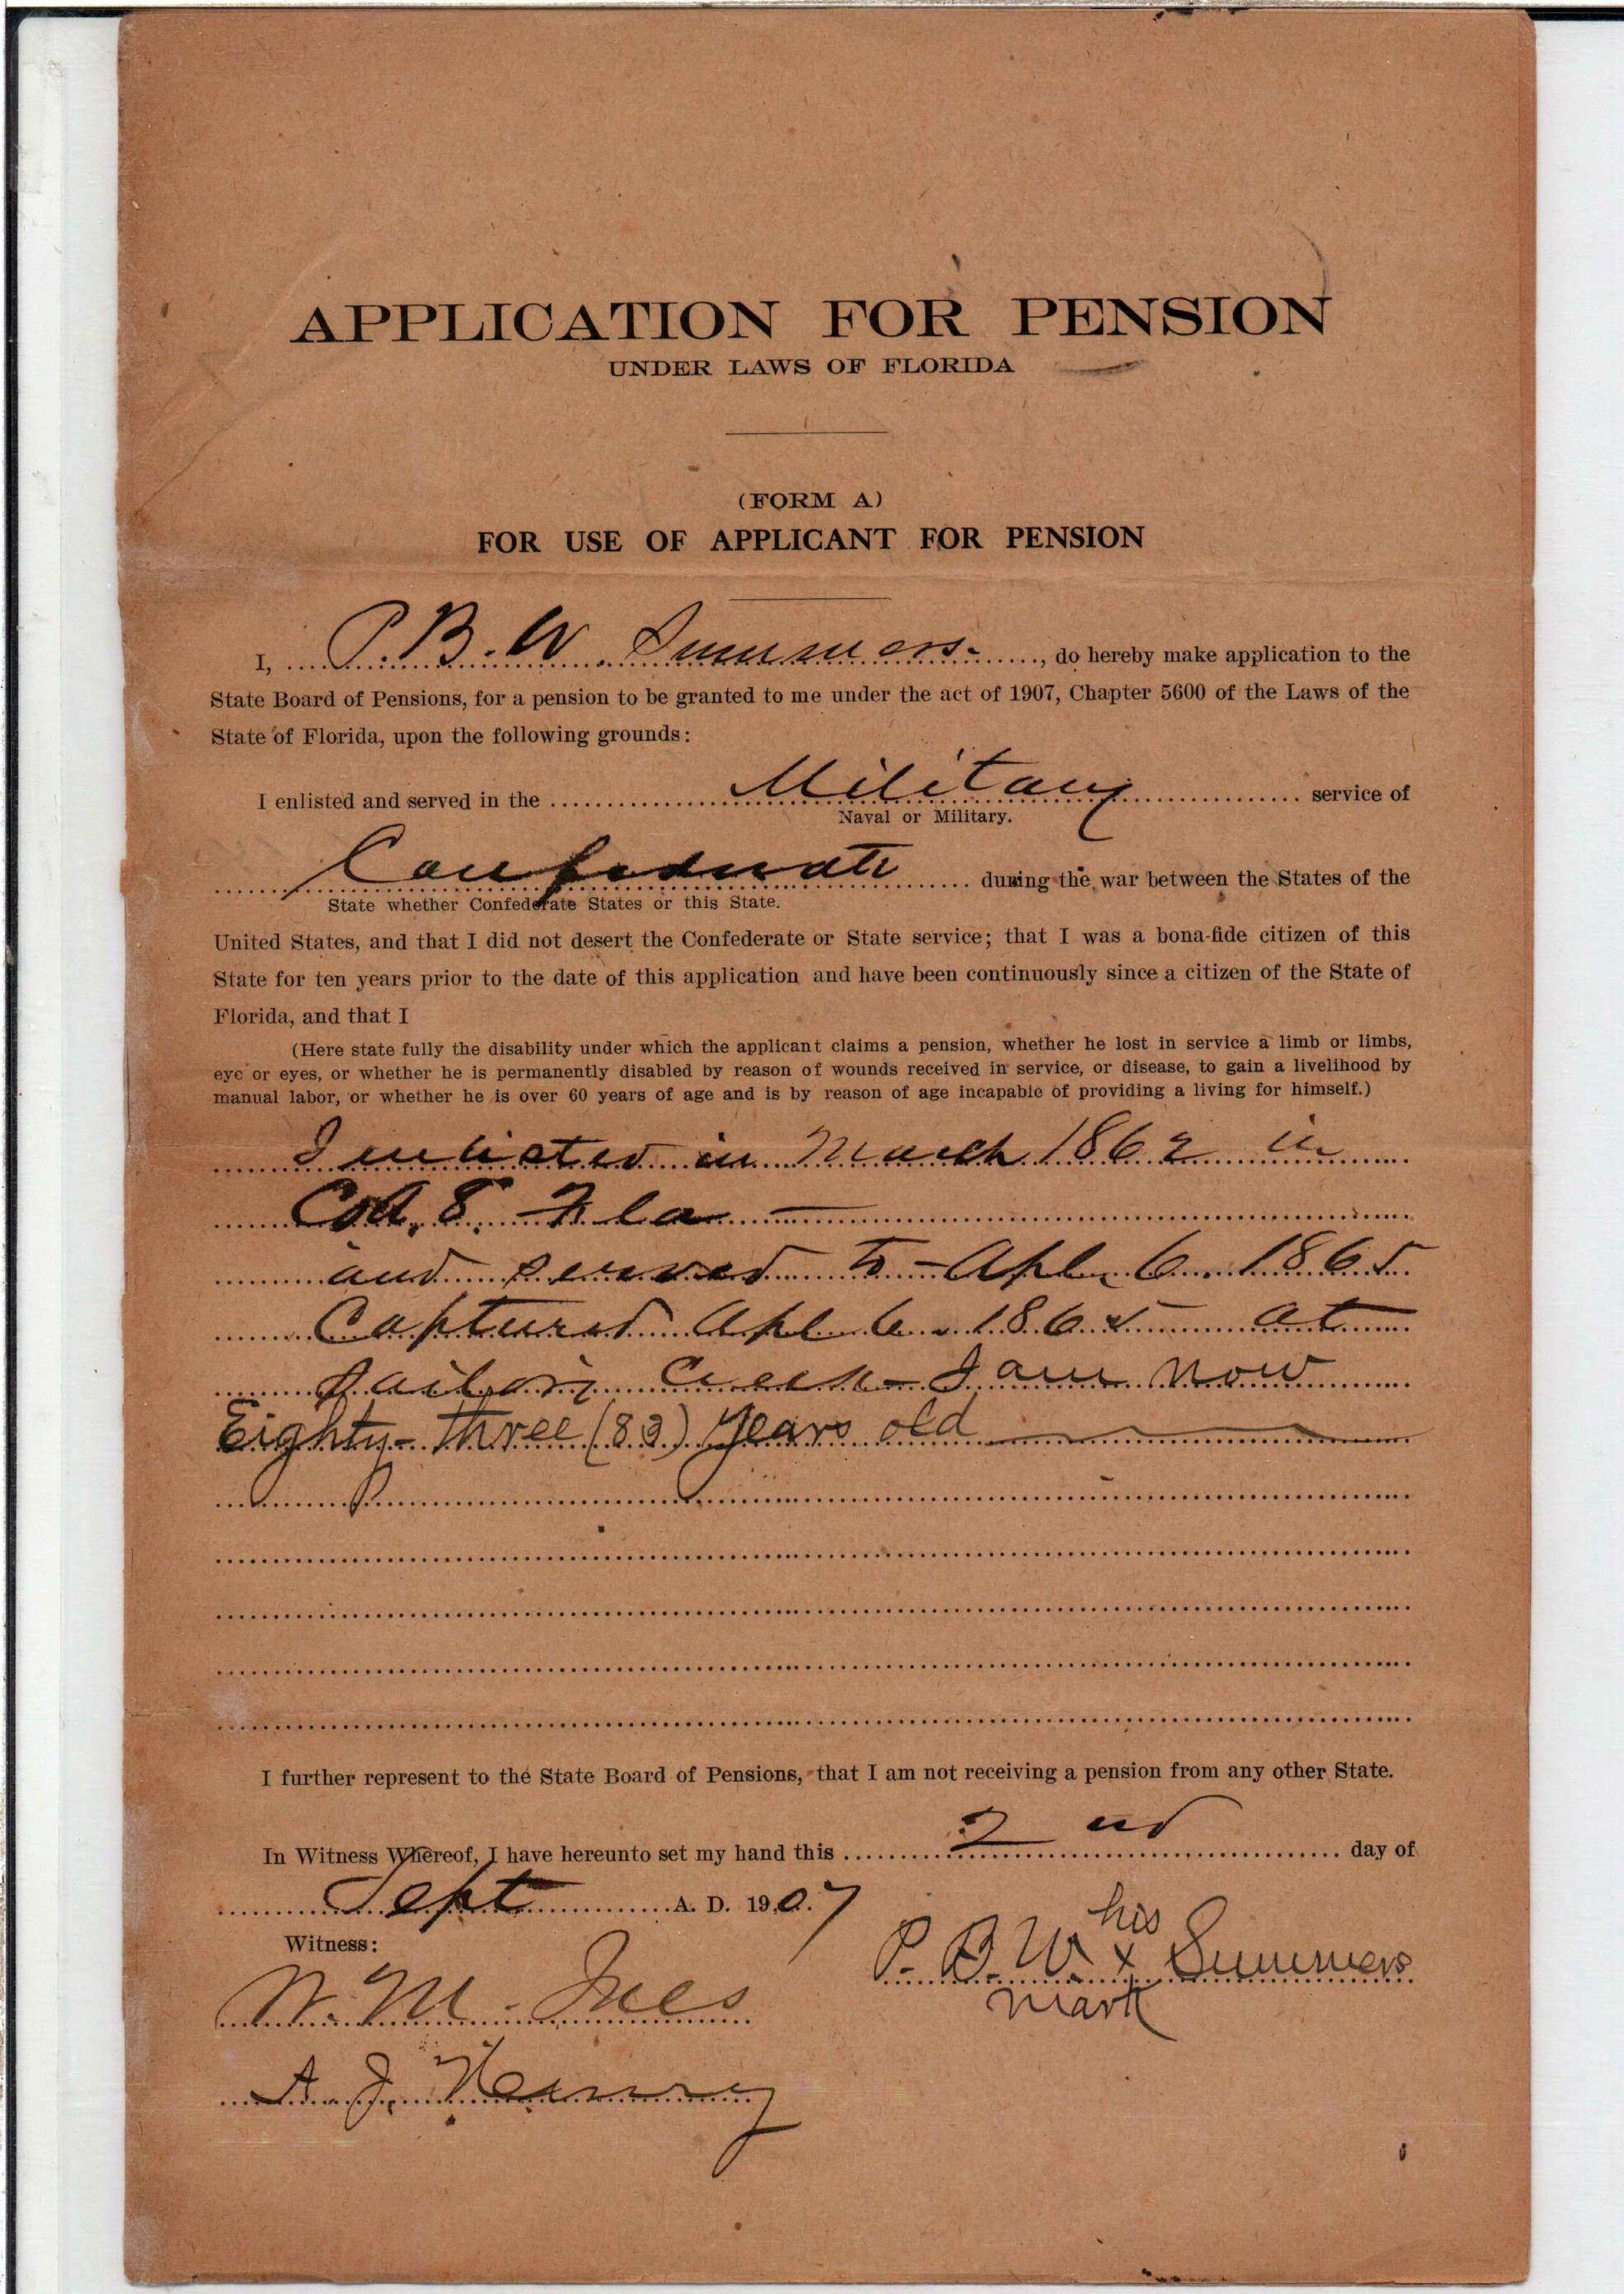 APPLICATION FOR PENSION
UNDER LAWS OF FLORIDA
(FORM A)
FOR USE OF APPLICANT FOR PENSION
I, P. B. W. Summers, do hereby make application to the
State Board of Pensions, for a pension to be granted to me under the act of 1907, Chapter 5600 of the Laws of the
State of Florida, upon the following grounds:
I enlisted and served in the Military service of
Naval or Military.
Confederate during the war between the States of the
State whether Confederate States or this State.
United States, and that I did not desert the Confederate or State service; that I was a bona-fide citizen of this
State for ten years prior to the date of this application and have been continuously since a citizen of the State of
Florida, and that I
(Here state fully the disability under which the applicant claims a pension, whether he lost in service a limb or limbs,
eye or eyes, or whether he is permanently disabled by reason of wounds received in service, or disease, to gain a livelihood by
manual labor, or whether he is over 60 years of age and is by reason of age incapable of providing a living for himself.)
I enlisted in March 1862 in
8. Fla
and served to - Apl. 6. 1865
Captured Apl 6. 1865 at
Sailors Creek - I am now
Eighty-three (83) years old
I further represent to the State Board of Pensions, that I am not receiving a pension from any other State.
In Witness Whereof, I have hereunto set my hand this 2nd day of
Sept A. D. 1907
Witness:
his
P. B. W. x Summers
mark
W. M. Ives
A. J.